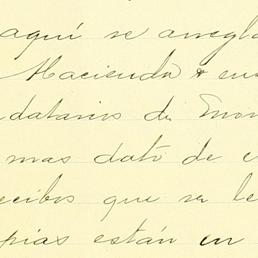 aquí se arregla
Hacienda & en
datarios de
mas dato de
ecibos que se le
pias están en